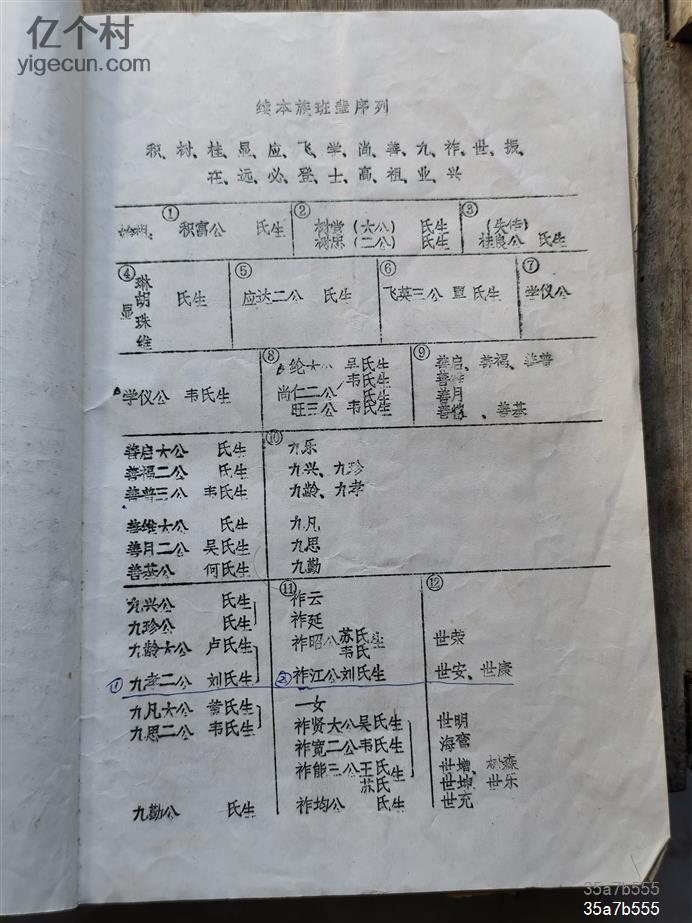 亿个村
yigecun.com
续本族班辈序列
积、树、桂、显、应、飞、学、尚、善、九、祚、世、振、
在、远、必、登、士、高、祖、业、兴
① ② ③
积富公 氏生 树堂(大公) 氏生 (失传)
树忠(二公) 氏生 桂良公 氏生
④ ⑤ ⑥ ⑦
显 琳 胡 珠 维 氏生 应达二公 氏生 飞英三公 覃氏生 学仪公
⑧ ⑨
学仪公 韦氏生 纶大公 吴氏生 善启、善福、善普
韦氏生 善
尚仁二公 氏生 善月
旺三公 韦氏生 、善基
⑩
善启大公 氏生 九乐
善福二公 氏生 九兴、九珍
善普三公 韦氏生 九龄、九孝
善维大公 氏生 九凡
善月二公 吴氏生 九思
善基公 何氏生 九勤
⑪ ⑫
九兴公 氏生 祚云
九珍公 氏生 祚延
九龄大公 卢氏生 祚昭公 苏氏生 世荣
韦氏
① 九孝二公 刘氏生 ② 祚江公刘氏生 世安、世庚
九凡大公 黄氏生 一女
九思二公 韦氏生 祚贤大公吴氏生 世明
祚宽二公韦氏生 海
祚能三公王氏生 世增、树森
苏氏 世坤、世乐
九勤公 氏生 祚均公 氏生 世充
35a7b555
35a7b555